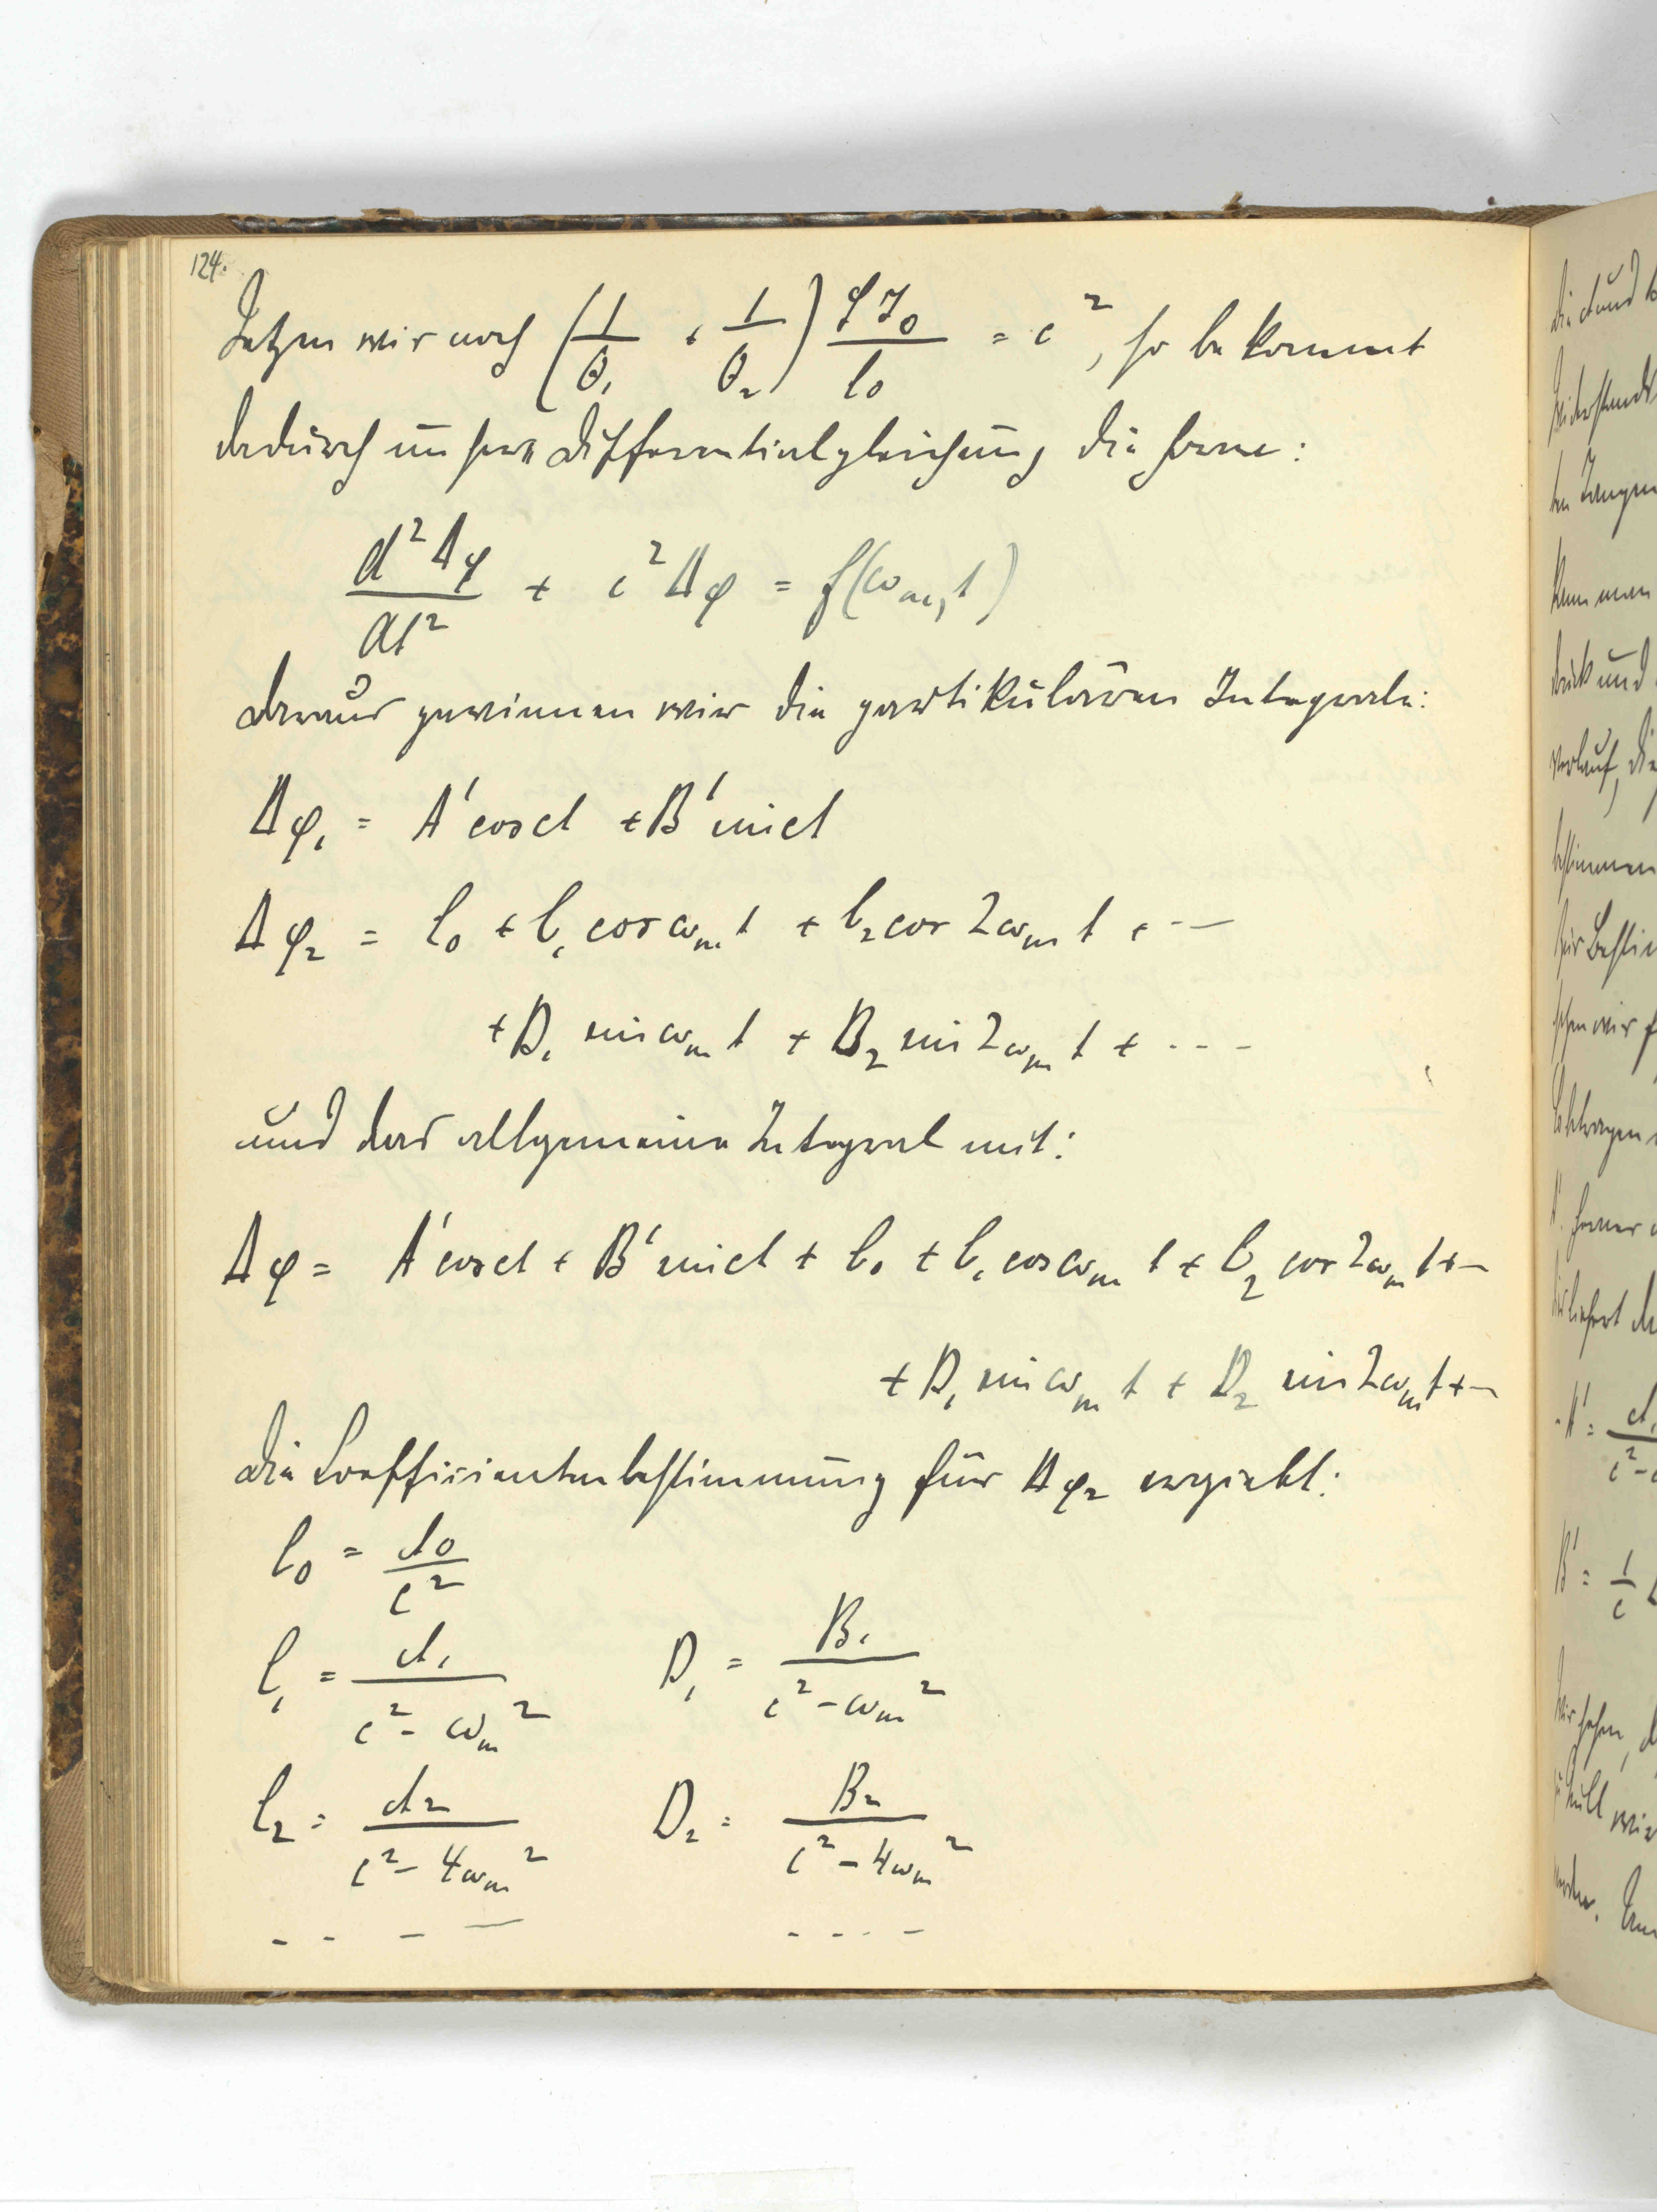 124.
Setzen wir noch (1/θ₁ + 1/θ₂) G J₀/l₀ = c², so bekommt
dadurch unsere Differentialgleichung die Form:
d²Δφ/dt² + c²Δφ = f(ωₘ, t)
Daraus gewinnen wir die partikulären Integrale:
Δφ₁ = A' cos ct + B' sin ct
Δφ₂ = C₀ + C₁ cos ωₘ t + C₂ cos 2ωₘ t + ---
+ D₁ sin ωₘ t + D₂ sin 2ωₘ t + ---
und das allgemeine Integral mit:
Δφ = A' cos ct + B' sin ct + C₀ + C₁ cos ωₘ t + C₂ cos 2ωₘ t + --
+ D₁ sin ωₘ t + D₂ sin 2ωₘ t + --
Die Coefficientenbestimmung für Δφ₂ ergiebt:
C₀ = A₀/c²
C₁ = A₁/(c² - ωₘ²) D₁ = B₁/(c² - ωₘ²)
C₂ = A₂/(c² - 4ωₘ²) D₂ = B₂/(c² - 4ωₘ²)
- - - - - - - -